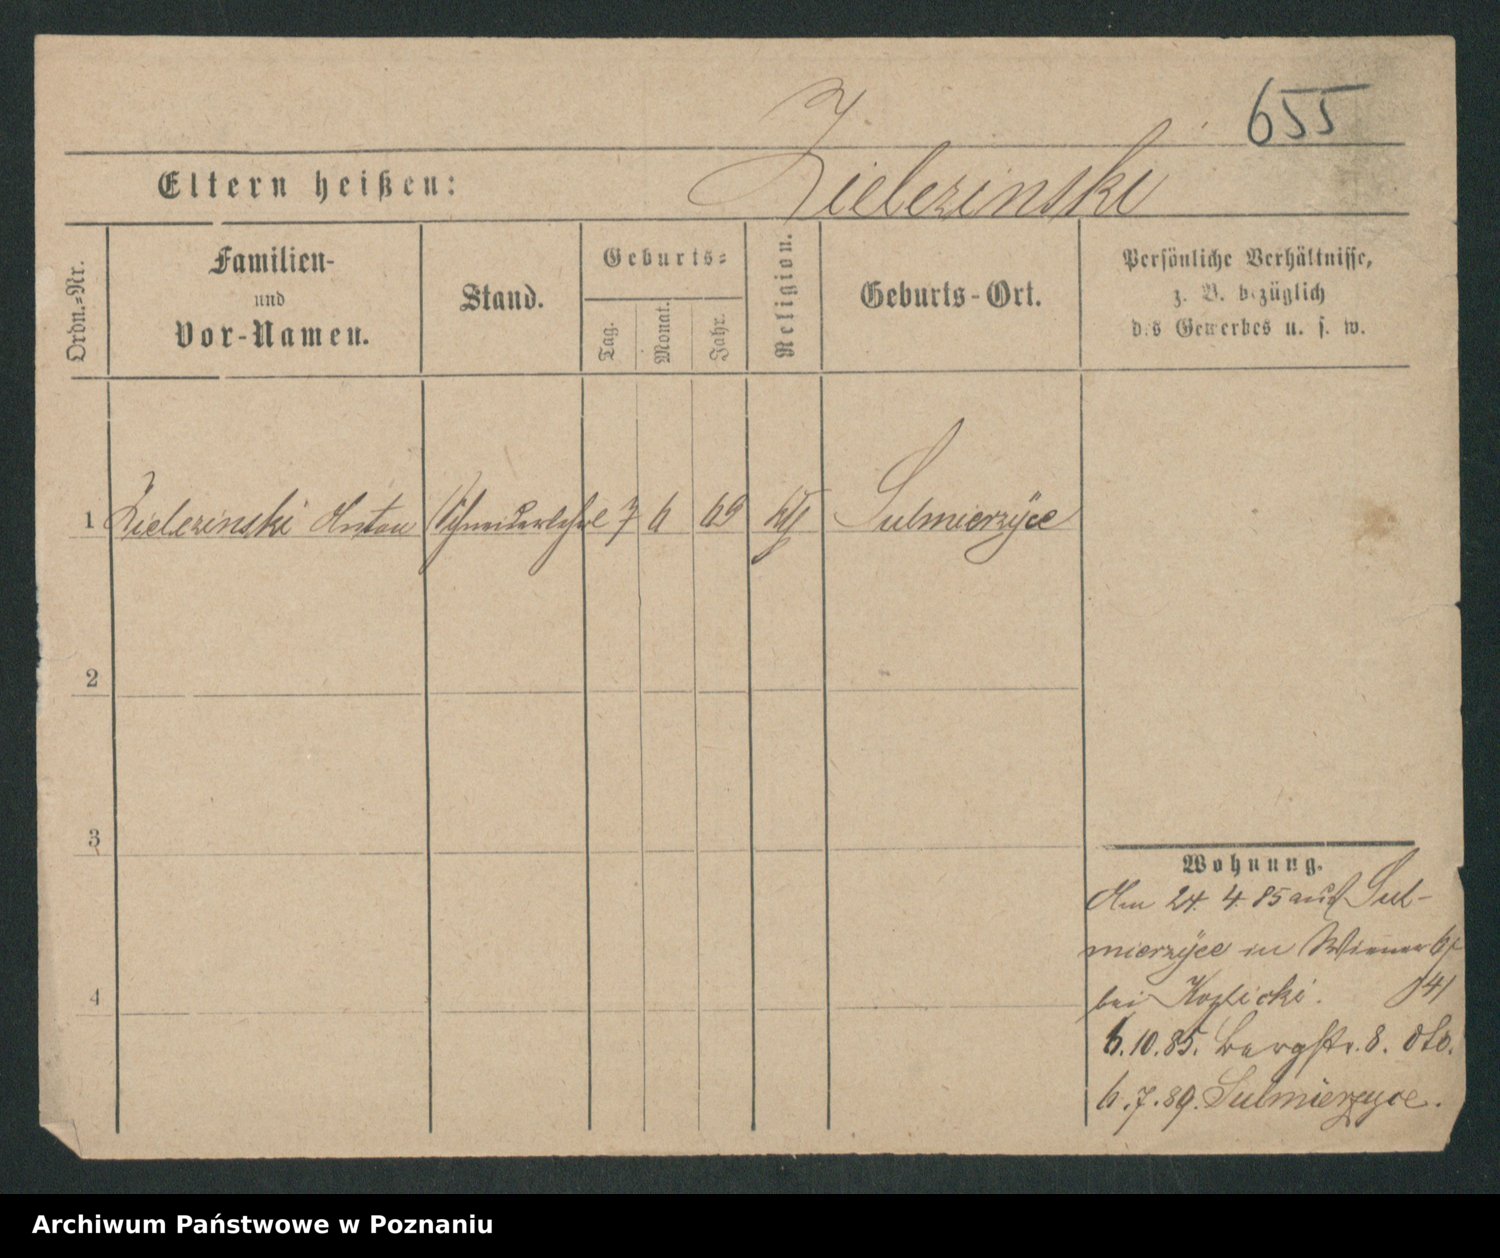 655
Zielezinski
Eltern heißen:
Ordn.=Nr.
Familien-
und
Vor-Namen.
Stand.
Geburts=
Tag.
Monat.
Jahr.
Religion.
Geburts-Ort.
Persönliche Verhältnisse,
z. B. bezüglich
des Gewerbes u. s. w.
1 Zielezinski Anton Schneiderlehrl 7 6 69 kath Sulmierzÿce
2
3
4
Wohnung.
Am 24. 4. 85 aus Sul-
mierzÿce in Wiener
bei Kozlicki. 141
6.10.85. Bergstr. 8. dto.
6.7.89. Sulmierzyce.
Archiwum Państwowe w Poznaniu